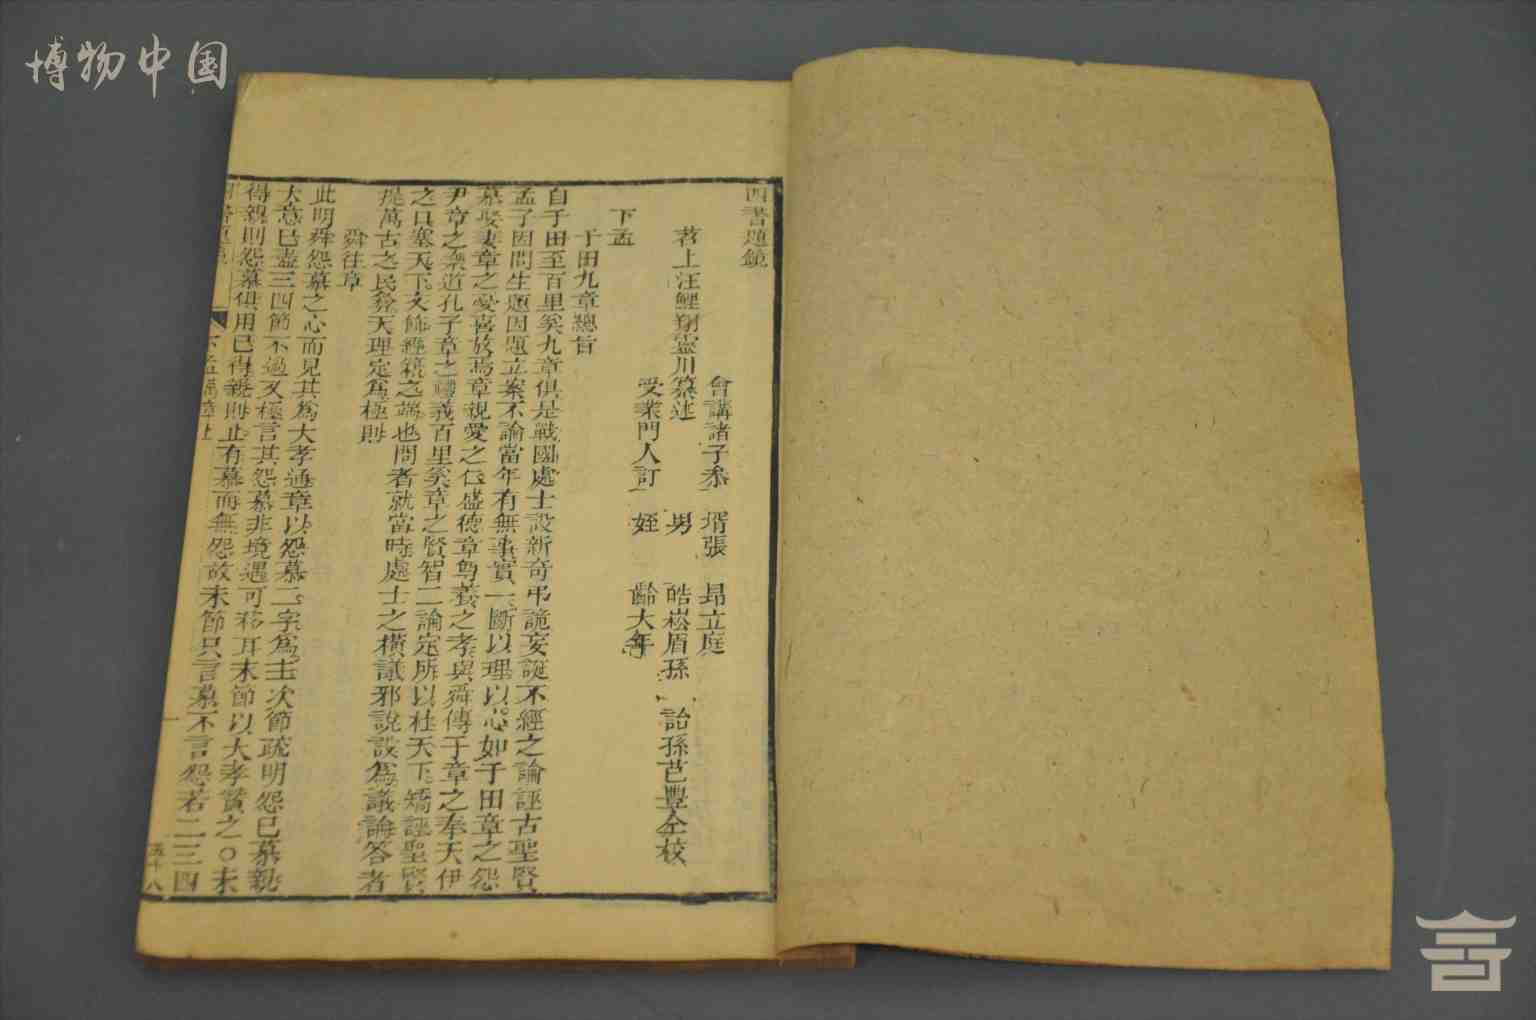 博物中国
四書題鏡
會講諸子叅 壻張 昂立庭
苕上汪鯉翔靈川纂述 男 皓崧眉孫 詒孫芑豐仝校
受業門人訂 姪 齡大年
下孟
于田九章總旨
自于田至百里奚九章俱是戰國處士設新奇弔詭妄誕不經之論誣古聖賢
孟子因問生題因題立案不論當年有無事實一斷以理以心如于田章之怨
慕娶妻章之憂喜放焉章親愛之仁盛德章尊養之孝與舜傳于章之奉天伊
尹章之樂道孔子章之禮義百里奚章之賢智二論定所以杜天下矯誣聖賢
之口塞天下文飾經籍之端也問者就當時處士之橫議邪說設為議論答者
提萬古之民彝天理定為極則
舜往章
此明舜怨慕之心而見其為大孝通章以怨慕二字為主次節疏明怨已慕親
大意已盡三四節不過又極言其怨慕非境遇可移耳末節以大孝贊之○未
得親則怨慕俱用已得親則止有慕而無怨故末節只言慕不言怨若二三四
下孟萬章上
五十八